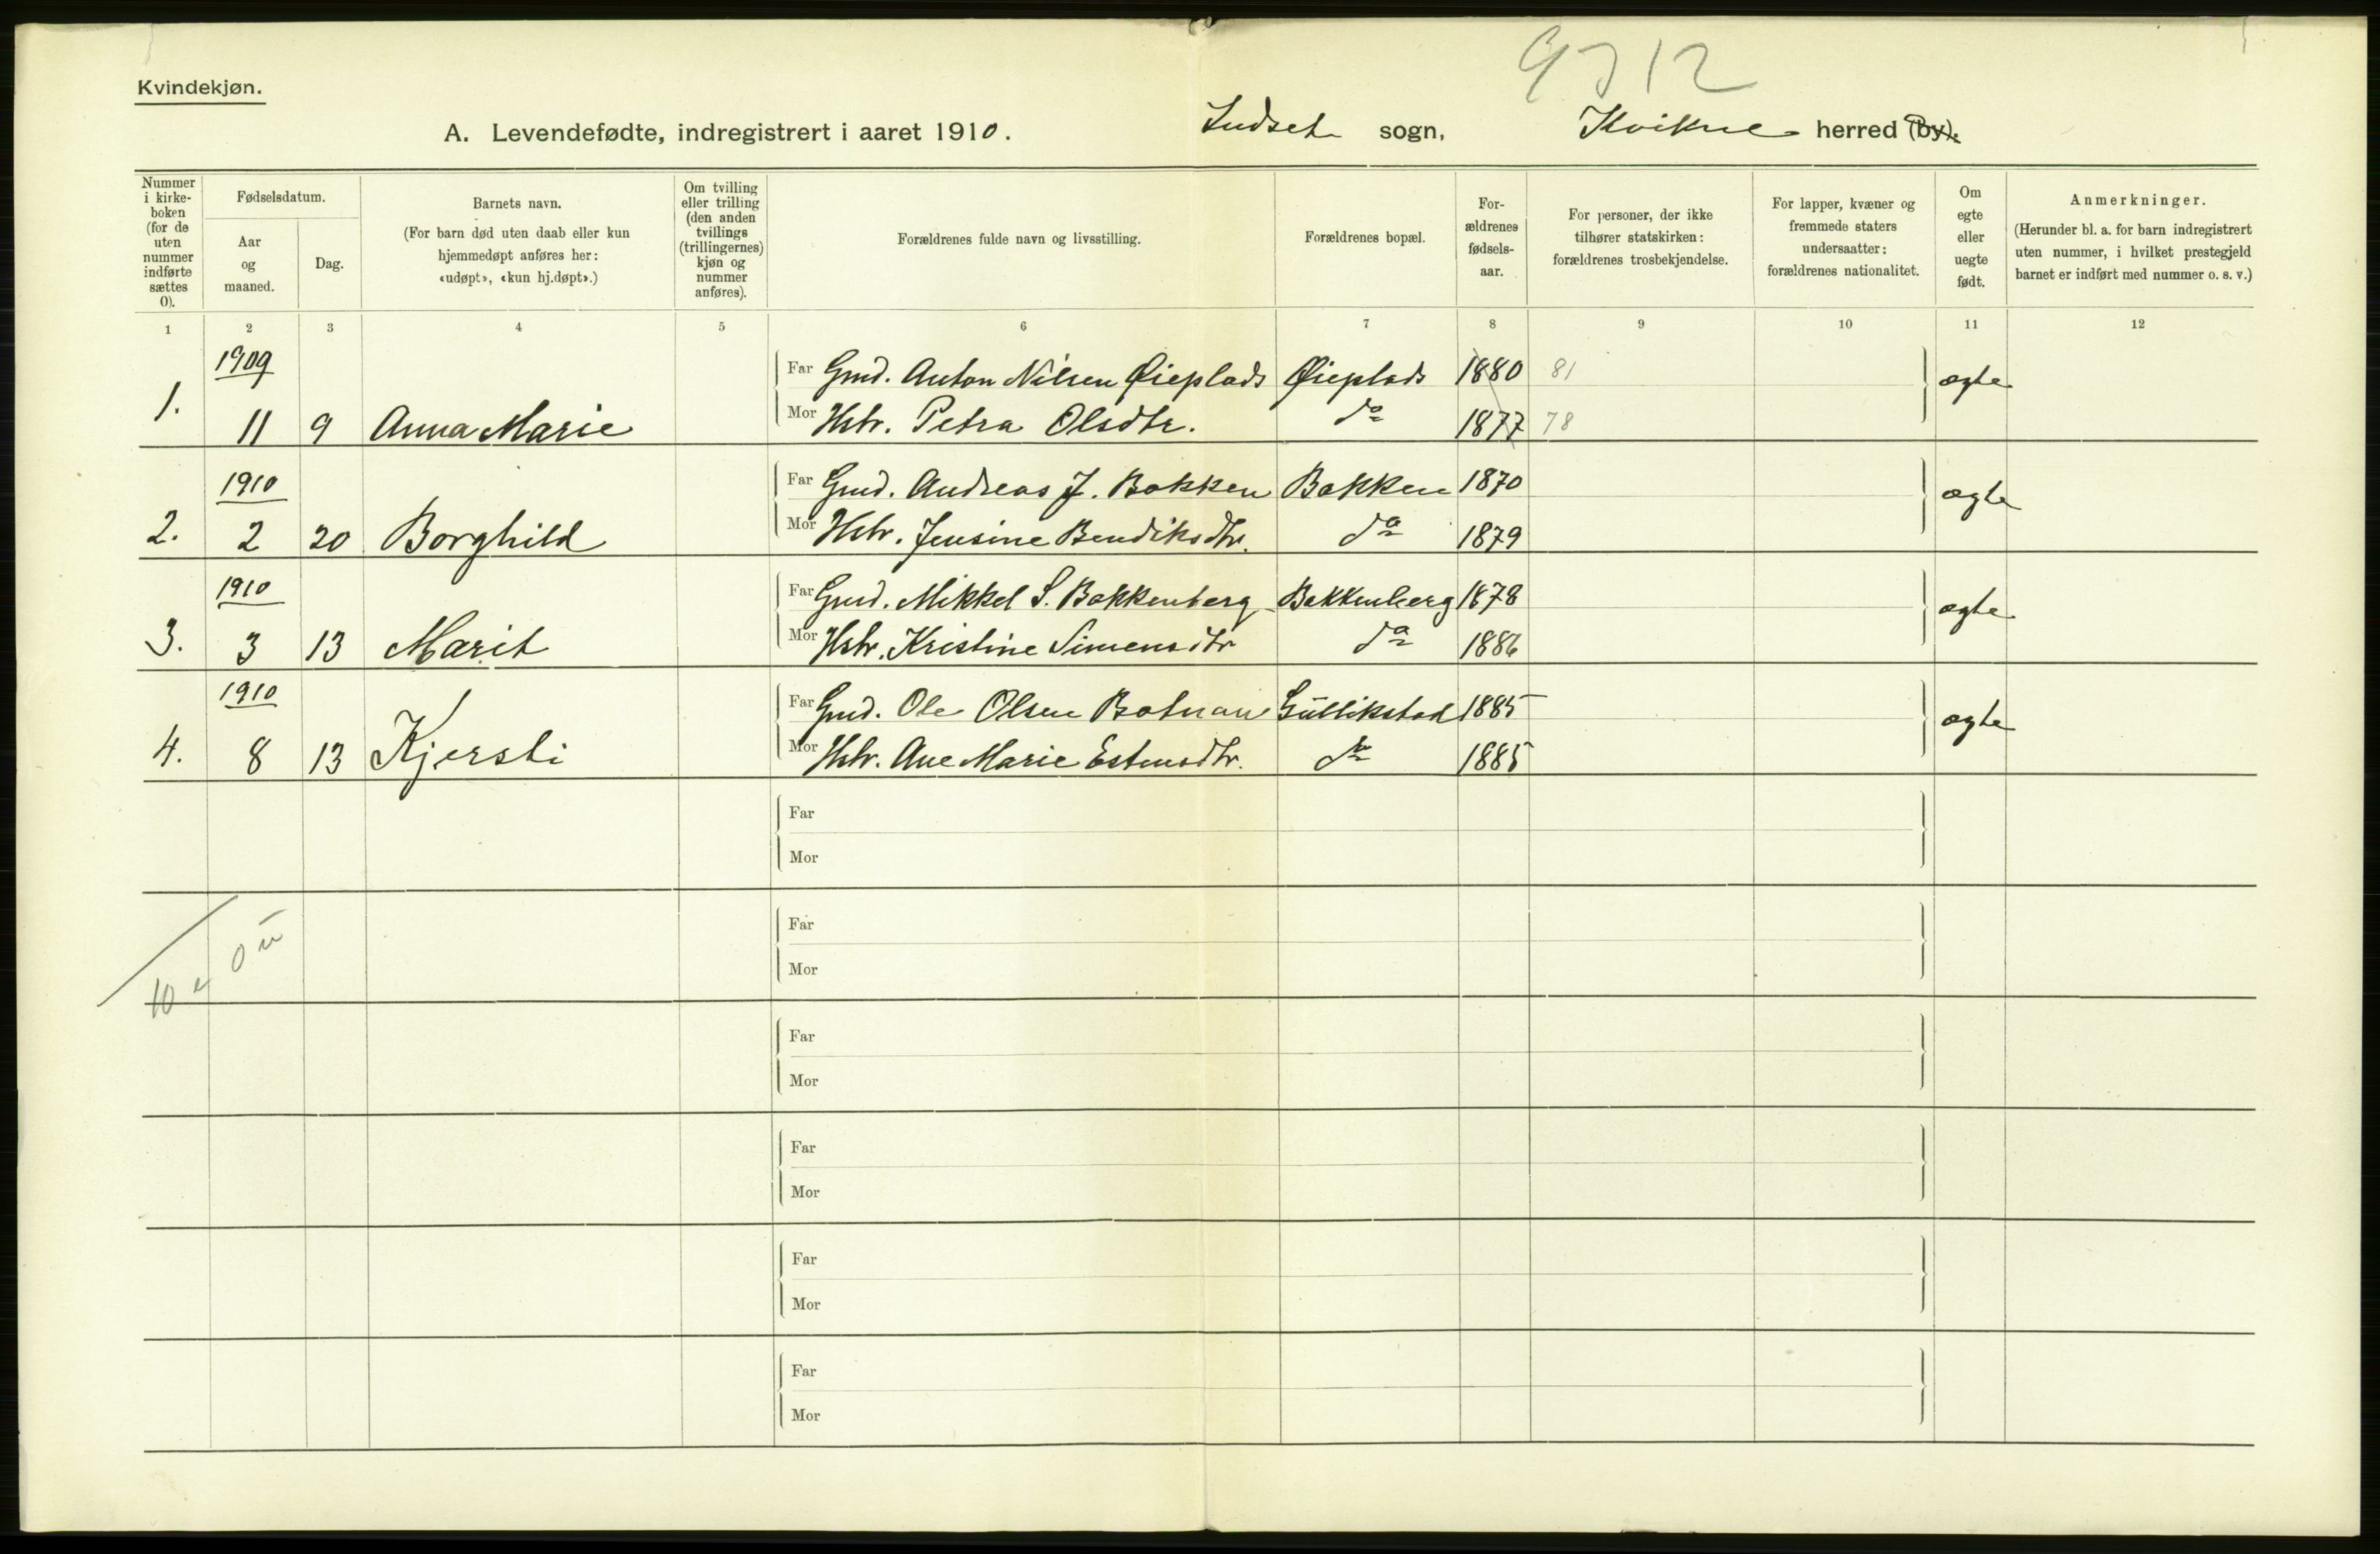 9712
Kvindekjøn.
A. Levendefødte, indregistrert i aaret 1910. Indset sogn, Kvikne herred (by).
Nummer i kirke-boken (for de uten nummer indførte sættes 0).
Fødselsdatum.
Aar og maaned.
Dag.
Barnets navn.
(For barn død uten daab eller kun hjemmedøpt anføres her: «udøpt», «kun hj.døpt».)
Om tvilling eller trilling (den anden tvillings (trillingernes) kjøn og nummer anføres).
Forældrenes fulde navn og livsstilling.
Forældrenes bopæl.
For-ældrenes fødsels-aar.
For personer, der ikke tilhører statskirken: forældrenes trosbekjendelse.
For lapper, kvæner og fremmede staters undersaatter: forældrenes nationalitet.
Om egte eller uegte født.
Anmerkninger.
(Herunder bl. a. for barn indregistrert uten nummer, i hvilket prestegjeld barnet er indført med nummer o. s. v.)
1 2 3 4 5 6 7 8 9 10 11 12
1909
Far Gmd. Anton Nilsen Øieplads Øieplads 1880 81 ægte
1. 11 9 Anna Marie Mor Hstr. Petra Olsdtr. do 1877 78
1910
Far Gmd. Andreas J. Bakken Bakken 1870 ægte
2. 2 20 Borghild Mor Hstr. Jensine Bendiksdtr. do 1879
1910
Far Gmd. Mikkel S. Bakkenberg Bakkenberg 1878 ægte
3. 3 13 Marit Mor Hstr. Kristine Simensdtr do 1886
1910
Far Gmd. Ole Olsen Botnan Gullikstad 1885 ægte
4. 8 13 Kjersti Mor Hstr. Ane Marie Estensdtr. do 1885
Far
Mor
Far
0 u
Mor
10 e
Far
Mor
Far
Mor
Far
Mor
Far
Mor